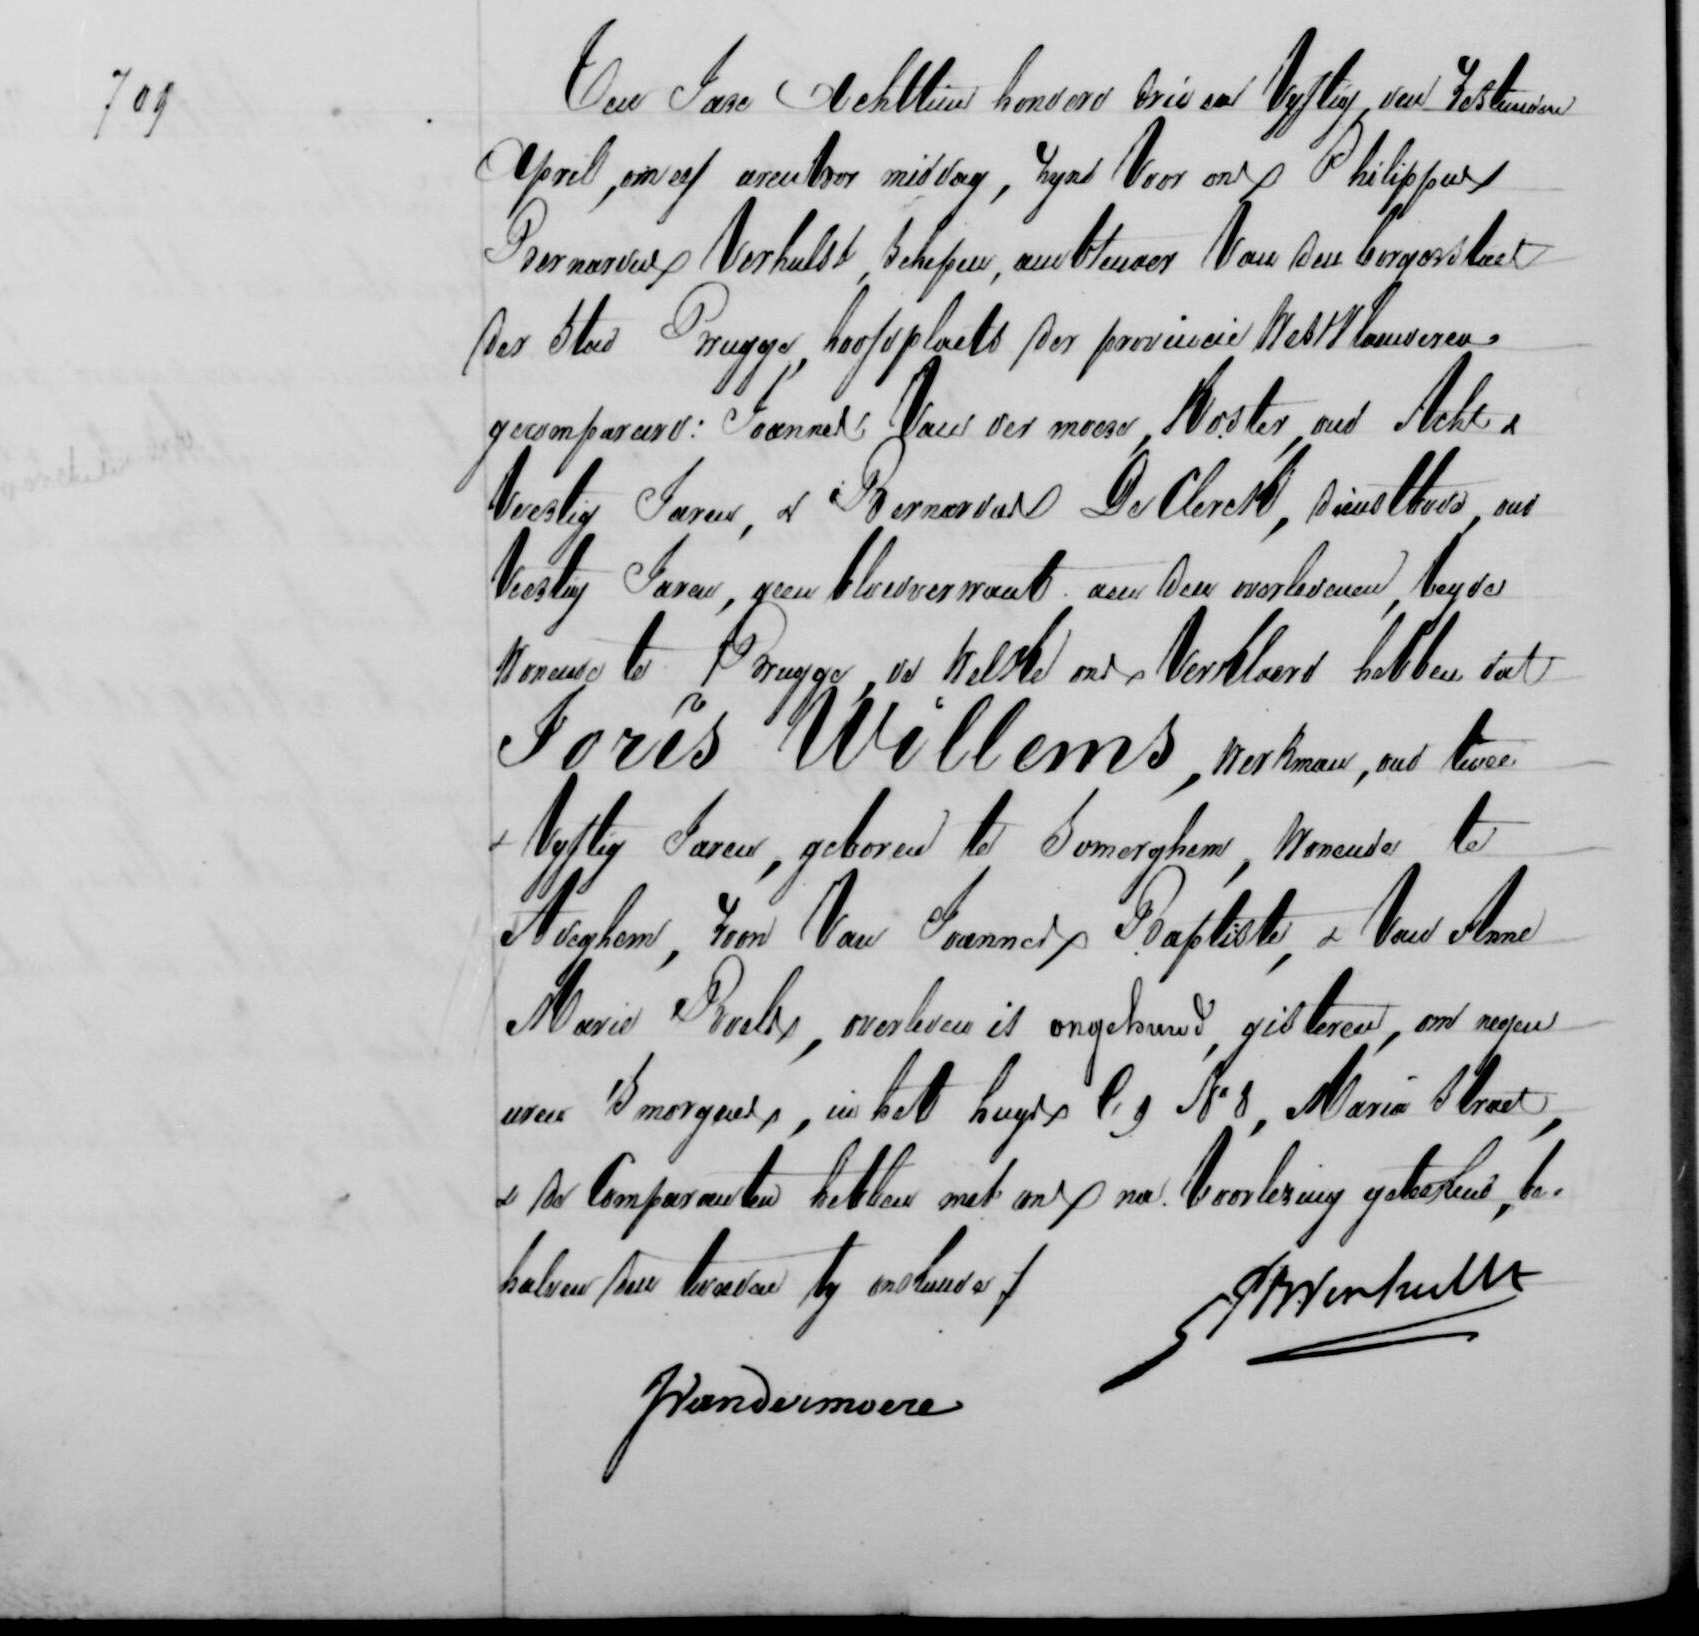 709
Den Jare Achttien honderd drie en Vyftig, den Zestienden
April, om elf uren voor middag, Zynd Voor ons Philippus
Bernardus Verhulst, Schepen, ambtenaer Van den borgerstaet
der Stad Brugge, hoofdplaets der provincie Westvlaenderen
gecompareerd: Joannes Van der moere, Koster, oud Acht &
Veertig Jaren, & Bernardus De Clerck, dienstbode, oud
Veertig Jaren, geen bloedverwant aen den overledenen, beyde
Wonende te Brugge, de Welke ons Verklaerd hebben dat
Joris Willems, Werkman, oud twee
& Vyftig Jaren, geboren te Somerghem, Wonende te
Adeghem, Zoon Van Joannes Baptiste, & Van Anne
Marie Roels, overleden is ongehuwd, gisteren, om negen
uren Smorgens, in het huys C, 9 No 8, Maria Straet,
& de Comparanten hebben met ons na Voorlezing geteekend, be-
halven den tweeden by onkunde
PBVerhulst
JVandermoere